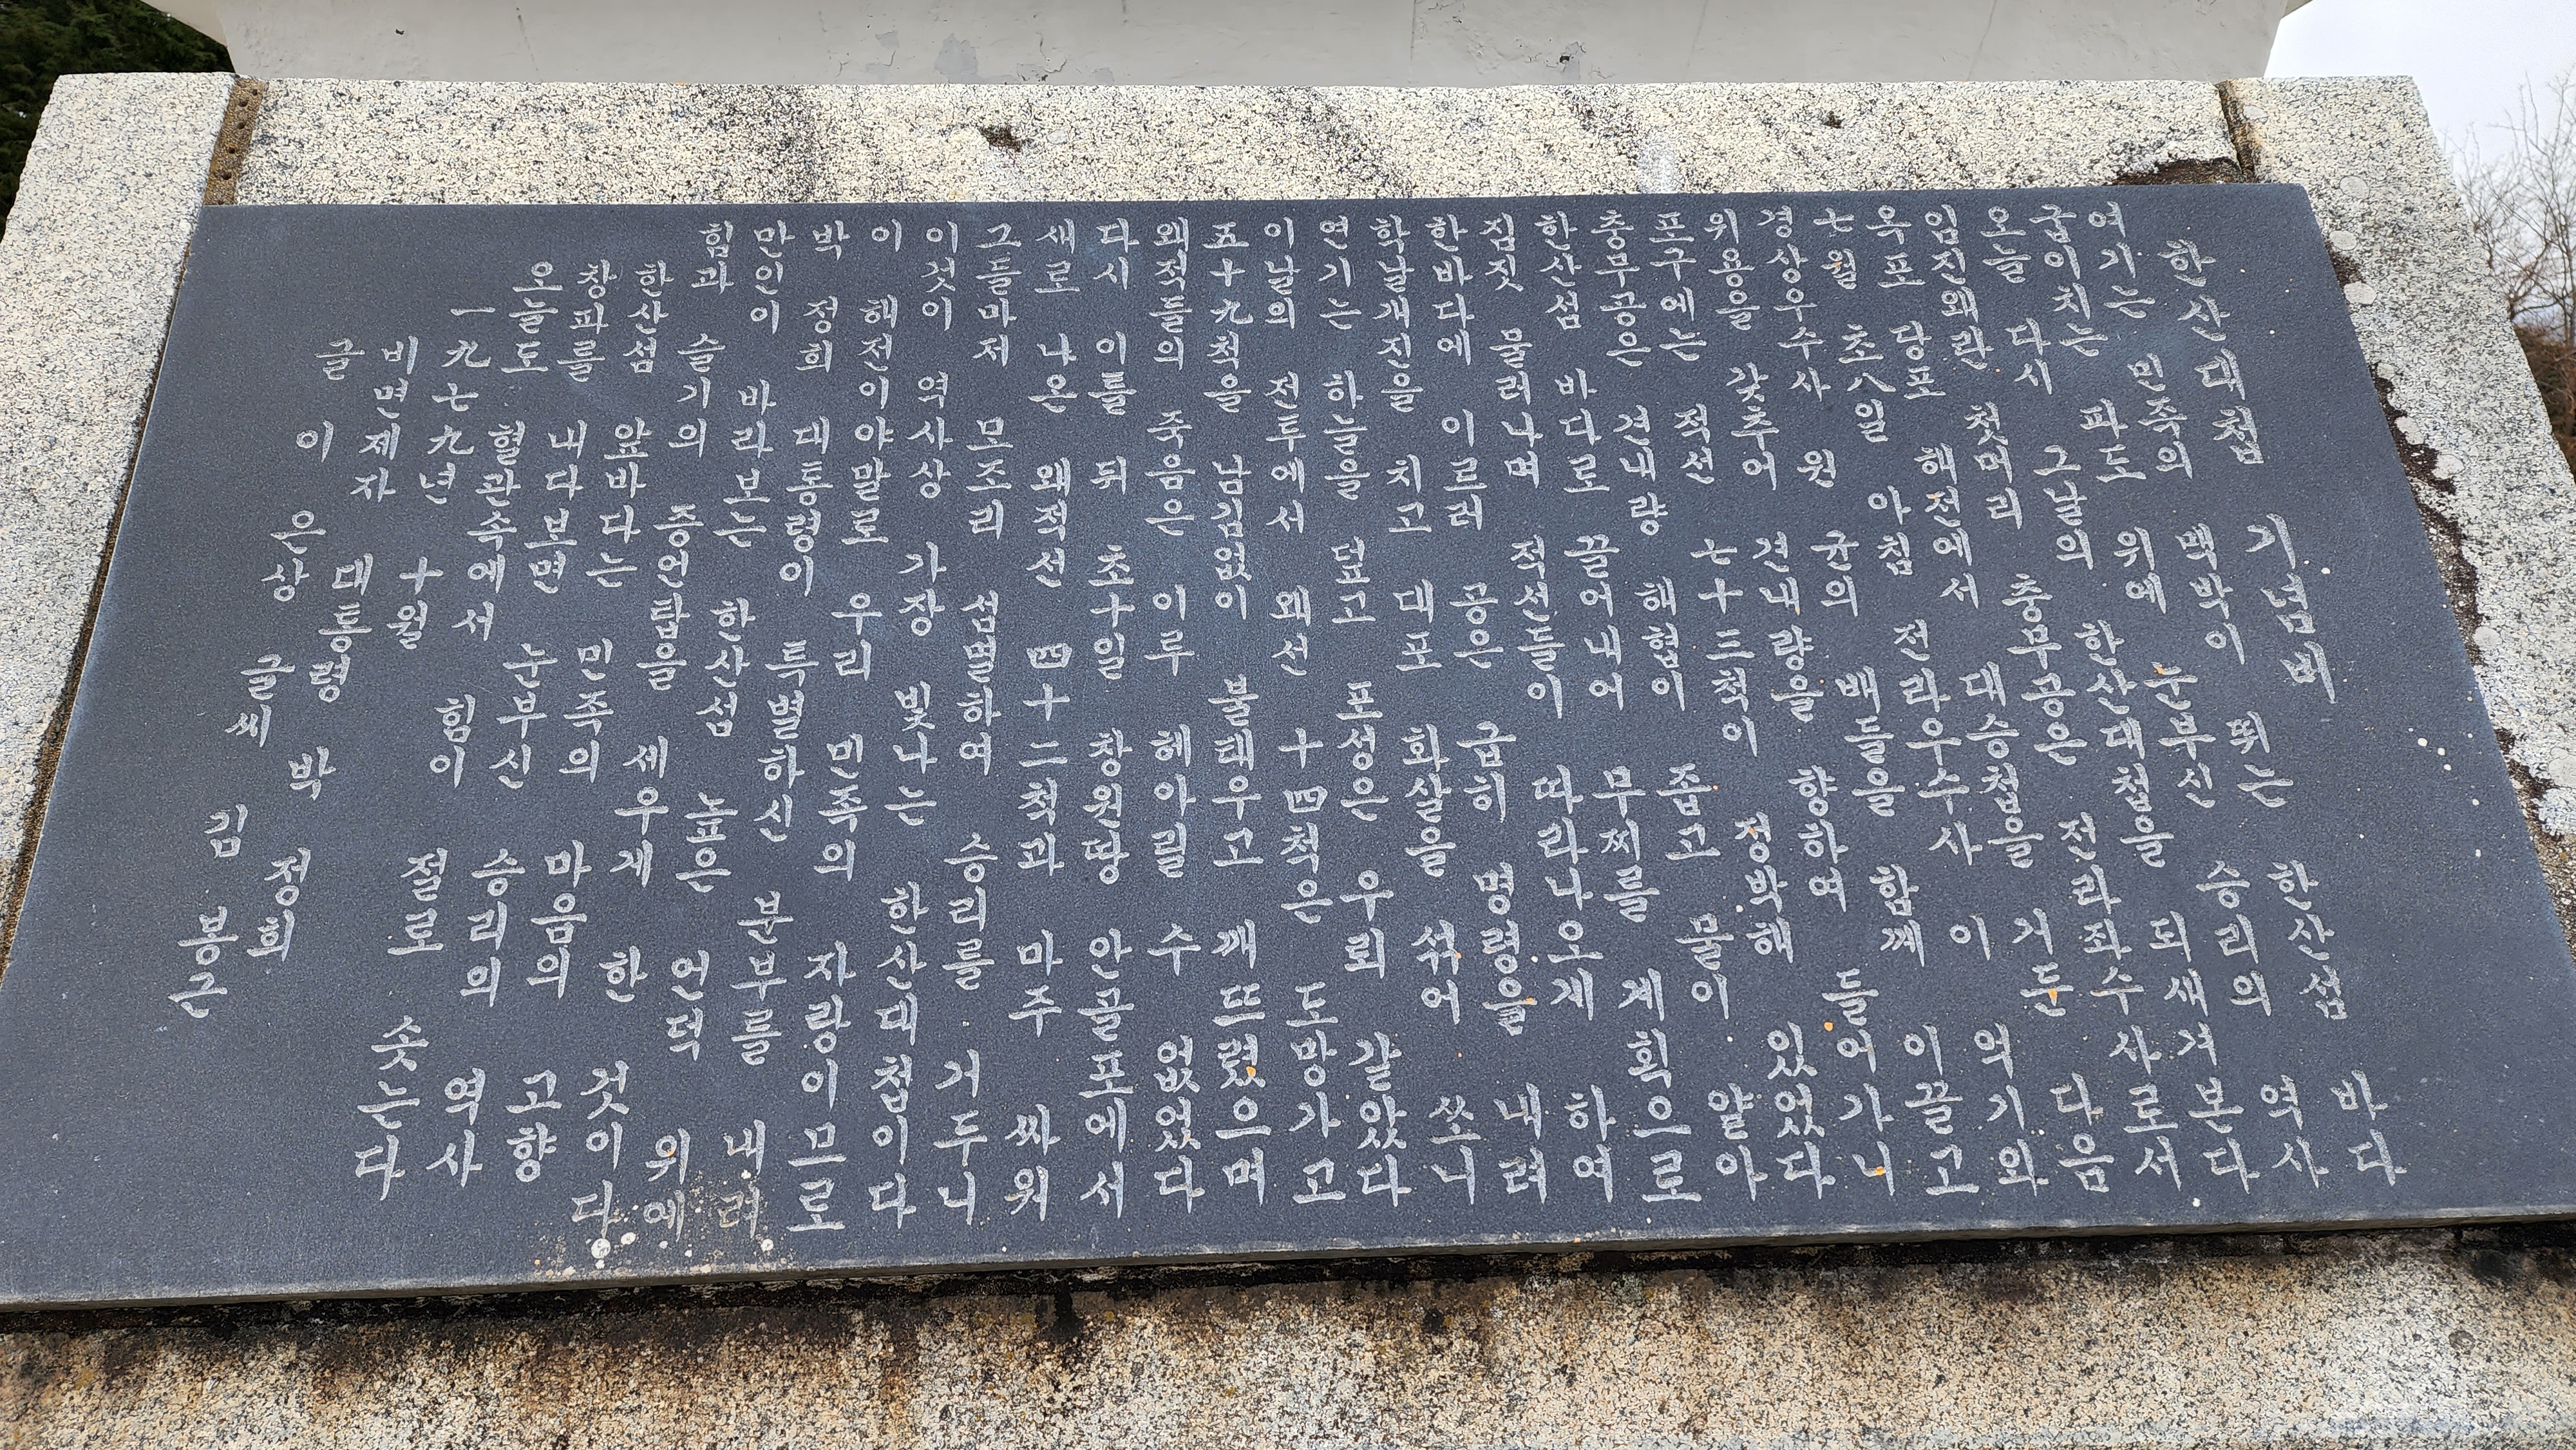 한산대첩 기념비
여기는 민족의 맥박이 뛰는 한산섬 바다
굽이치는 파도 위에 눈부신 승리의 역사
오늘 다시 그날의 한산대첩을 되새겨 본다
임진왜란 첫머리 충무공은 전라좌수사로서
옥포 당포 해전에서 대승첩을 거둔 다음
七월 초八일 아침 전라우수사 이 억기와
경상우수사 원 균의 배들을 함께 이끌고
위용을 갖추어 견내량을 향하여 들어가니
포구에는 적선 七十三척이 정박해 있었다
충무공은 견내량 해협이 좁고 물이 얕아
한산섬 바다로 끌어내어 무찌를 계획으로
짐짓 물러나며 적선들이 따라나오게 하여
한바다에 이르러 공은 급히 명령을 내려
학날개진을 치고 대포 화살을 섞어 쏘니
연기는 하늘을 덮고 포성은 우뢰 같았다
이날의 전투에서 왜선 十四척은 도망가고
五十九척을 남김없이 불태우고 깨뜨렸으며
왜적들의 죽음은 이루 헤아릴 수 없었다
다시 이틀 뒤 초十일 창원땅 안골포에서
새로 나온 왜적선 四十二척과 마주 싸워
그들마저 모조리 섬멸하여 승리를 거두니
이것이 역사상 가장 빛나는 한산대첩이다
이 해전이야말로 우리 민족의 자랑이므로
박 정희 대통령이 특별하신 분부를 내려
만인이 바라보는 한산섬 높은 언덕 위에
힘과 슬기의 증언탑을 세우게 한 것이다
한산섬 앞바다는 민족의 마음의 고향
창파를 내다보면 눈부신 승리의 역사
오늘도 혈관속에서 힘이 절로 솟는다
一九七九년 十월
비면제자 대통령 박 정희
글 이 은상 글씨 김 봉근